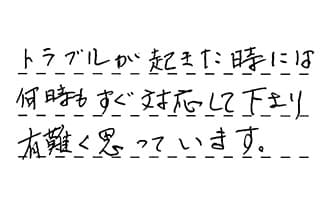 トラブルが起きた時には
何時もすぐ対応して下さり
有難く思っています。